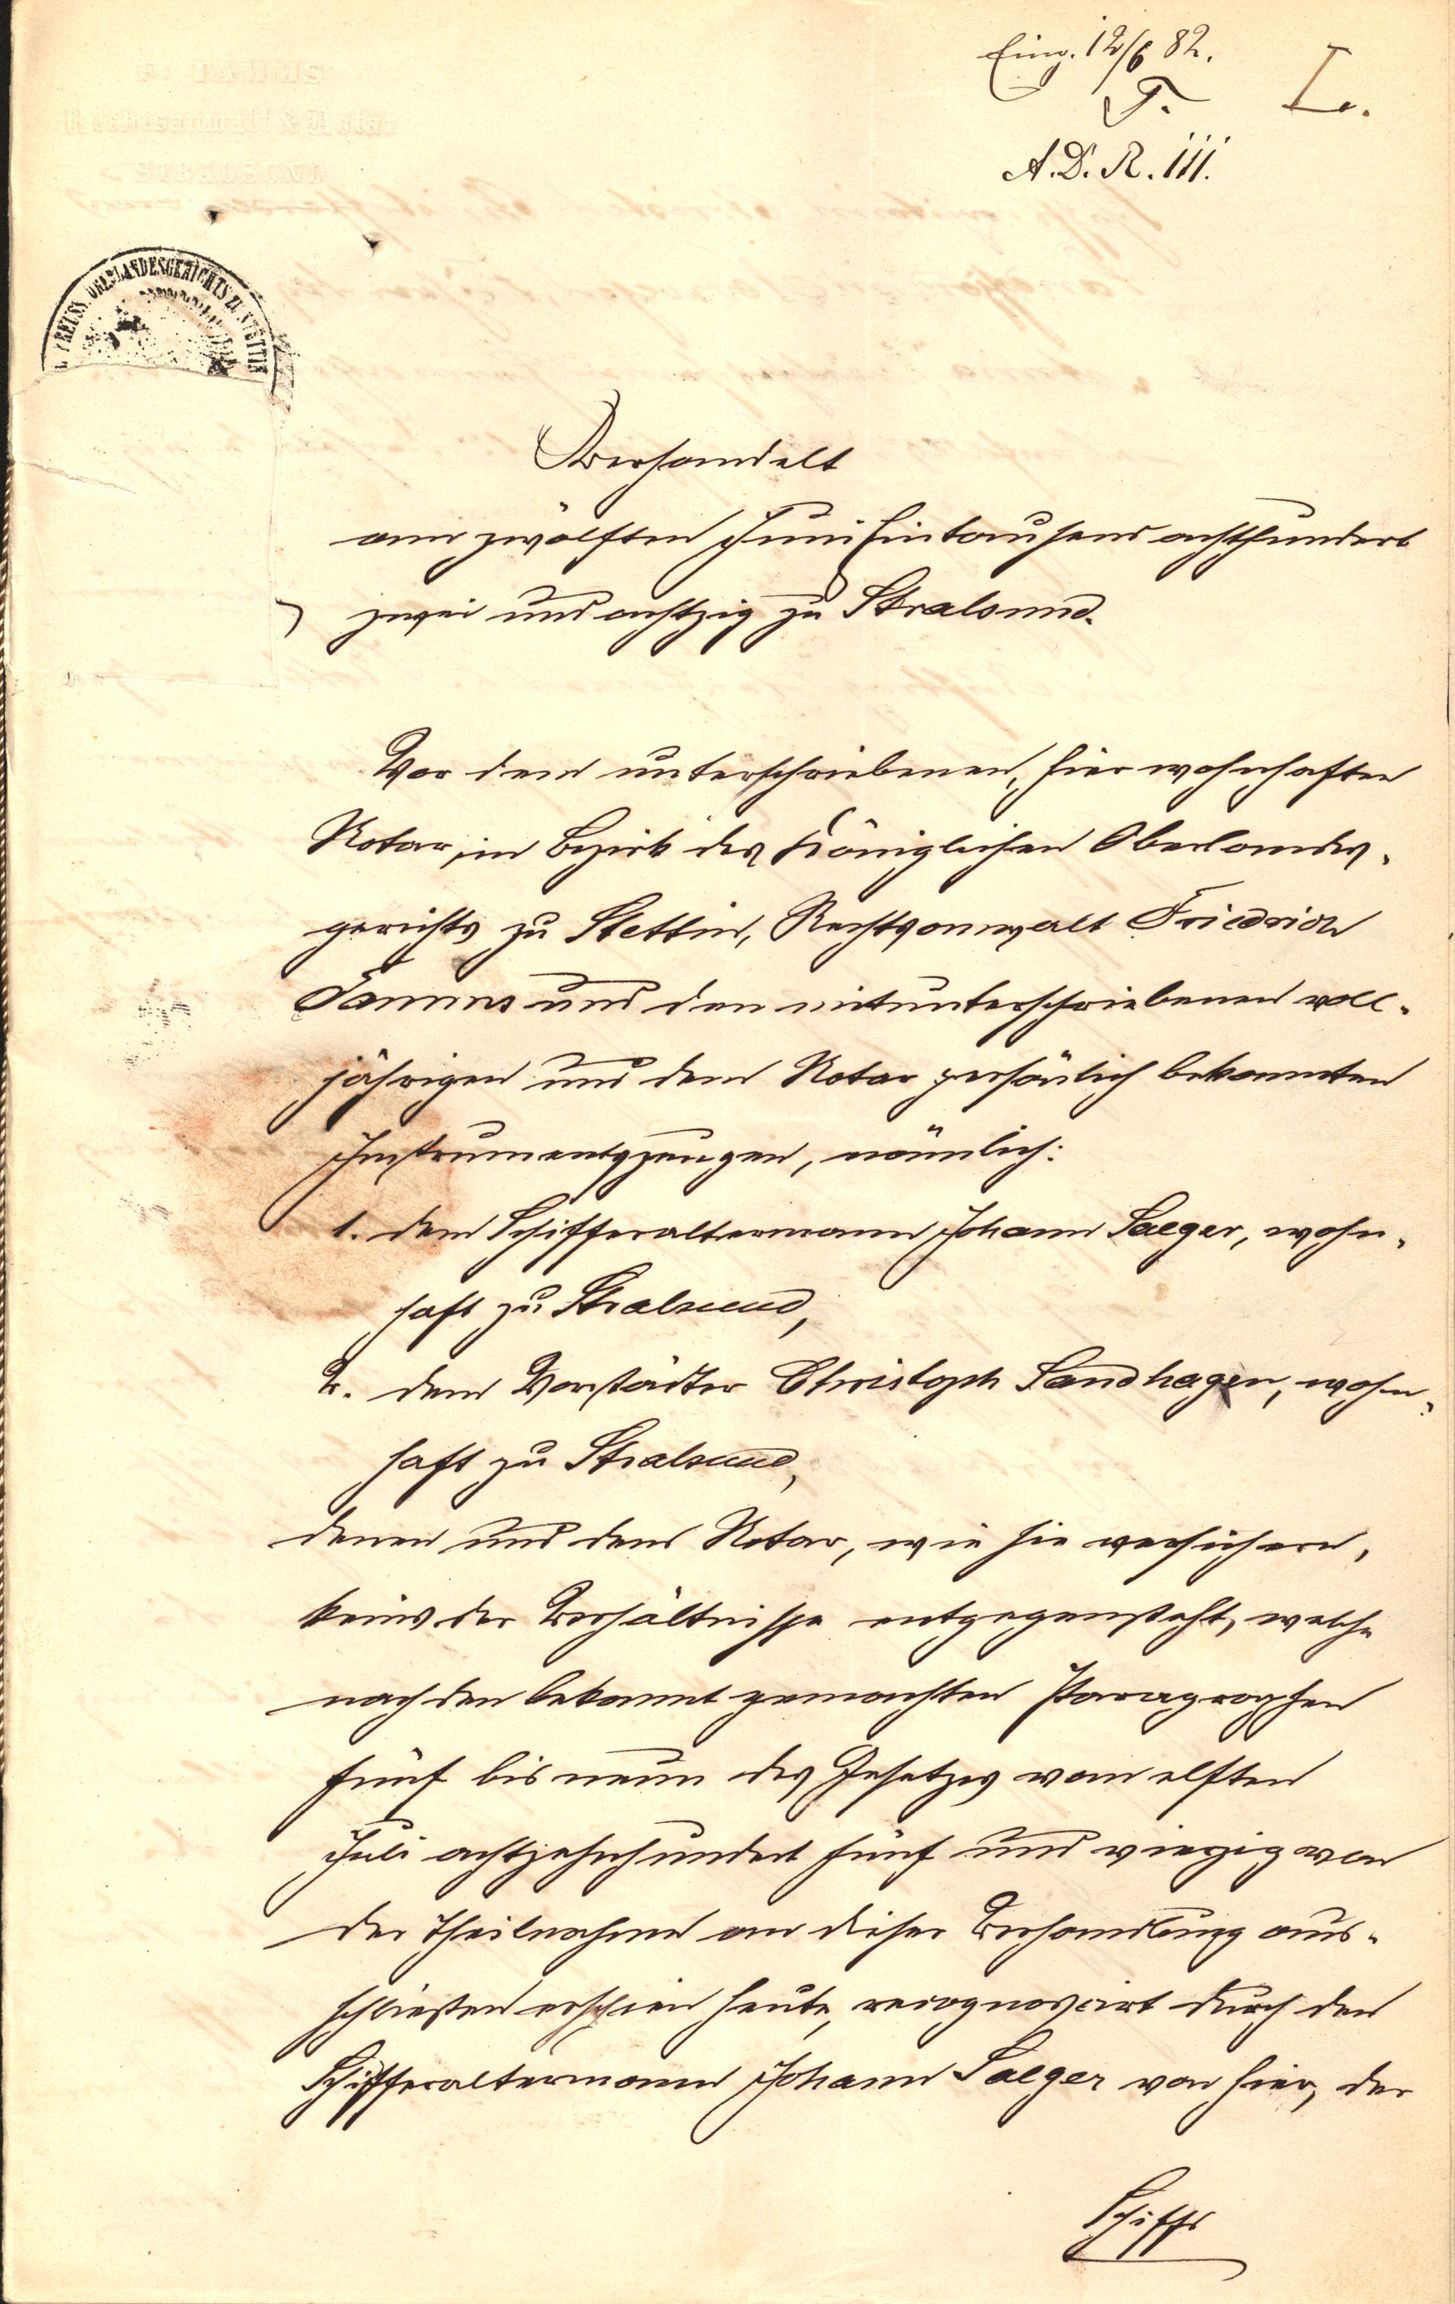 Eing. 12/6 82.
T. L.
A. D. R. III.
F. TAMMS
Rechtsanwalt & Notar
STRALSUND
K. PREUSS. OBERLANDESGERICHTS ZU STETTIN
Verhandelt
am zwölften Juni Eintausend achthundert
zwei und achtzig zu Stralsund.
Vor dem unterschriebenen, hier wohnhaften
Notar im Bezirk des Königlichen Oberlandes-
gerichts zu Stettin, Rechtsanwalt Friedrich
Tamms und den mitunterschriebenen voll-
jährigen und dem Notar persönlich bekannten
Instrumentszeugen, nämlich:
1. dem Schifferaltermann Johann Saeger, wohn-
haft zu Stralsund,
2. dem Vorstädter Christoph Sandhagen, wohn-
haft zu Stralsund,
denen und dem Notar, wie sie versichern,
keins der Verhältnisse entgegensteht, welche
nach den bekannt gemachten Paragraphen
fünf bis neun des Gesetzes vom elften
Juli achtzehnhundert fünf und vierzig von
der Theilnahme an dieser Verhandlung aus-
schließen erschien heute, recognoscirt durch den
Schifferaltermann Johann Saeger von hier, der
Schiffs